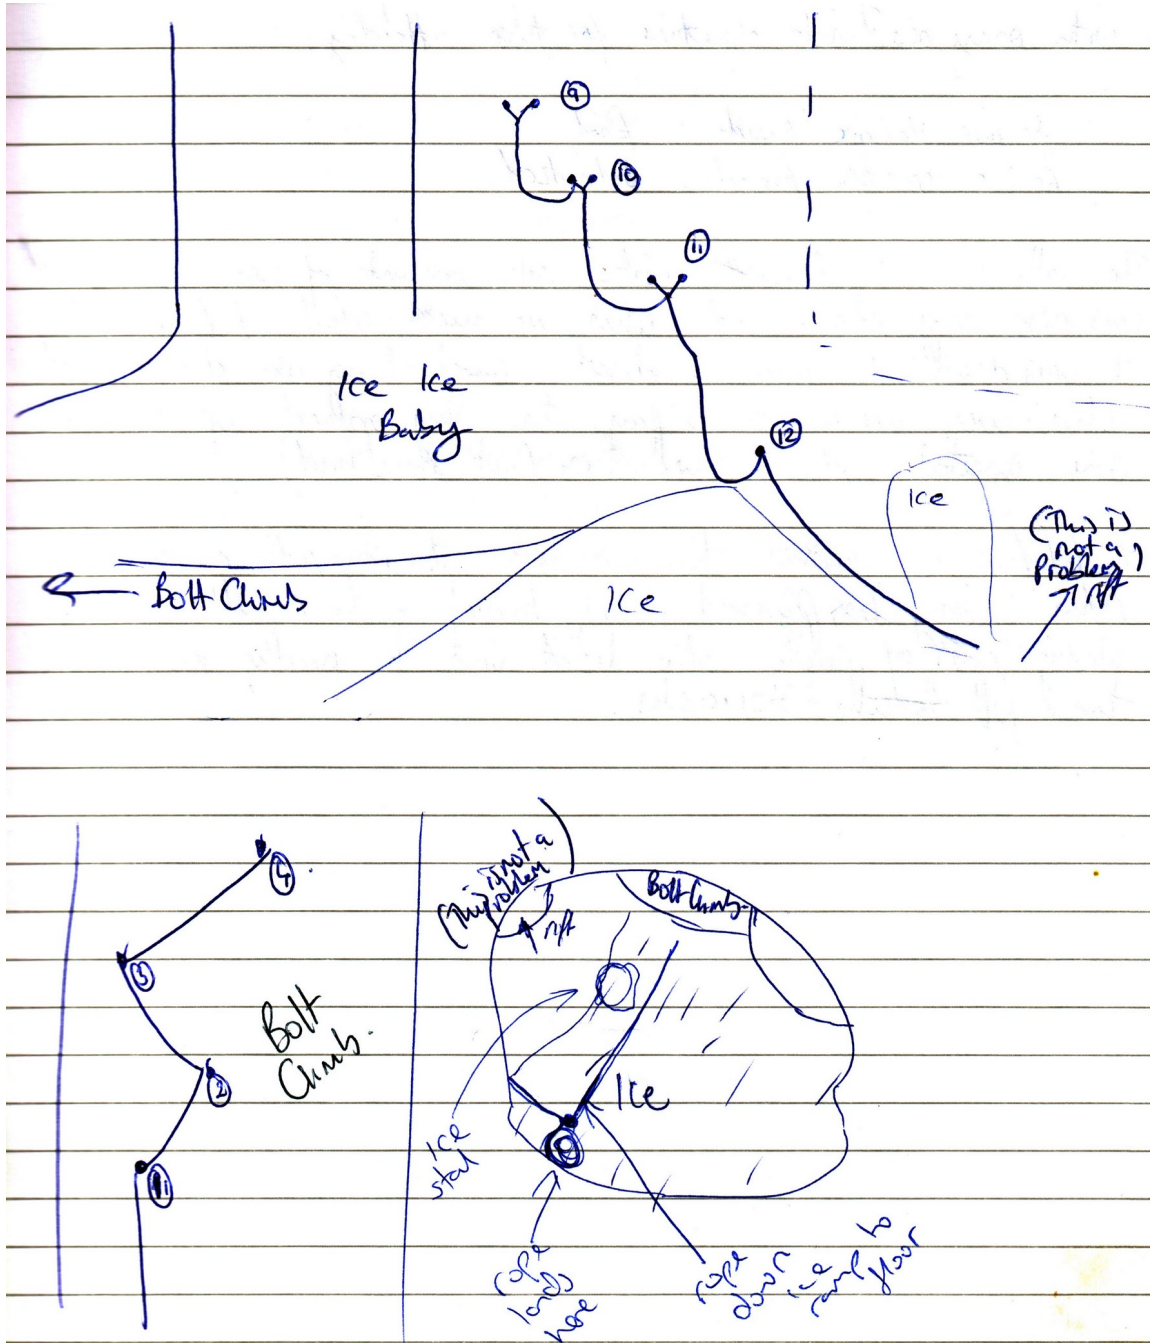 9
10
11
Ice Ice
Baby
12
Ice
(This is
not a
Problem)
rift
← Bolt Climb
Ice
4
3
Bolt
Climb.
2
1
(This is not a
Problem)
rift
Bolt Climb
Ice
Ice
stal
rope
lands
here
rope
down
ice
ramp to
floor